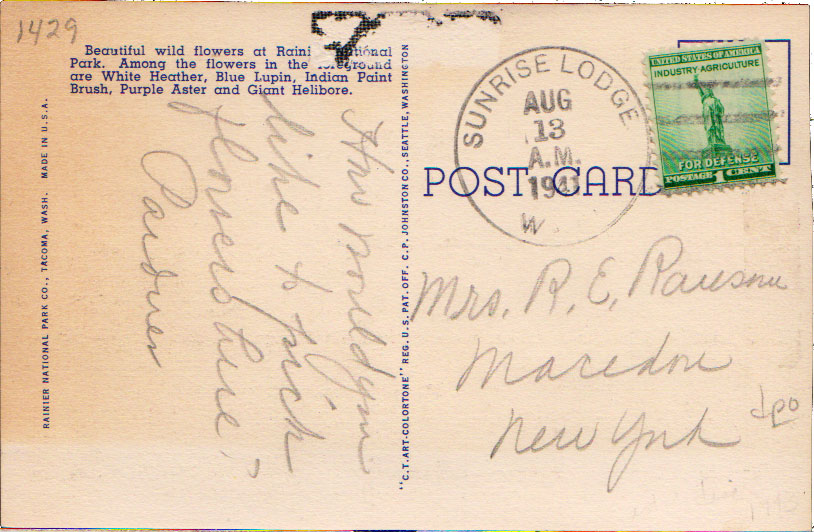 1429
Beautiful wild flowers at Raini National
Park. Among the flowers in the foreground
are White Heather, Blue Lupin, Indian Paint
Brush, Purple Aster and Giant Helibore.
RAINIER NATIONAL PARK CO., TACOMA, WASH. MADE IN U.S.A.
How would you
like to pick
flowers here?
"C.T. ART-COLORTONE" REG. U.S. PAT. OFF. C.P. JOHNSTON CO., SEATTLE, WASHINGTON
SUNRISE LODGE
AUG
13
A.M.
1941
W
UNITED STATES OF AMERICA
INDUSTRY AGRICULTURE
FOR DEFENSE
POSTAGE 1 CENT
POST CARD
Mrs. R. E. Ransom
Macedon
New York
dpo